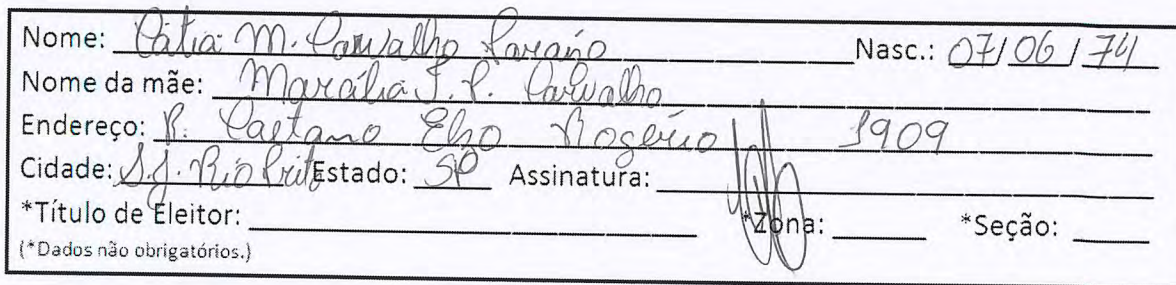 Nome: Cátia M. Carvalho Nasc.: 07/06/74
Nome da mãe: J. P. Carvalho
Endereço: R. Caetano Elzo Rogério 1909
Cidade: S.J. Rio Preto Estado: SP Assinatura:
*Título de Eleitor: *Zona: *Seção:
(*Dados não obrigatórios.)